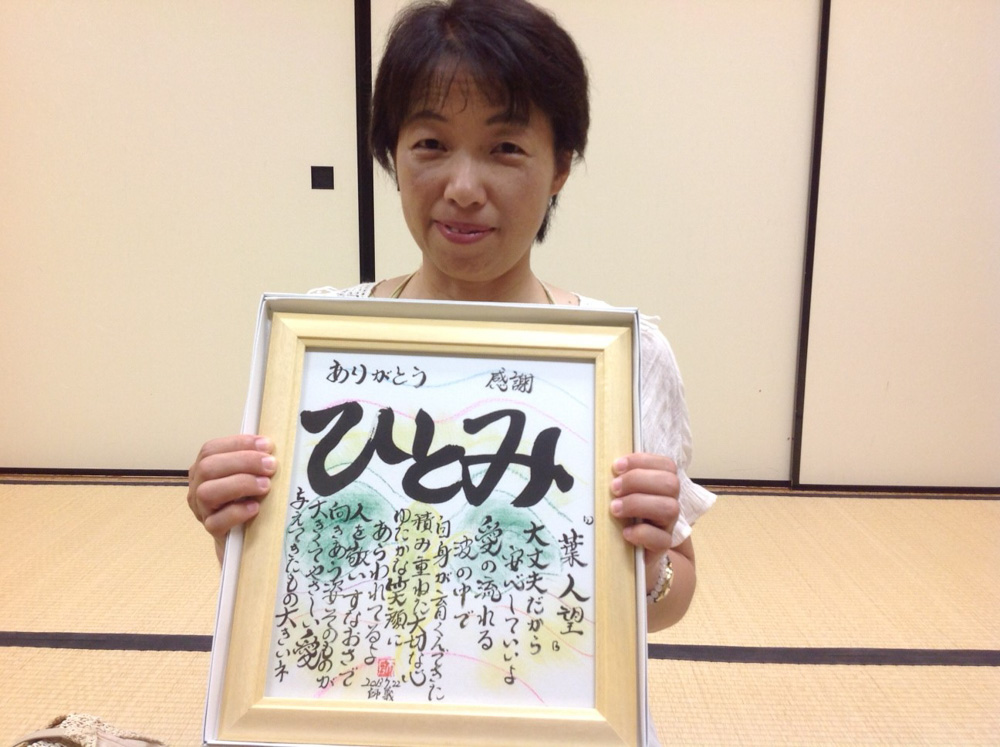 ありがとう
感謝
ひとみ
葉人望
大丈夫だから
安心していいよ
愛の流れる
波の中で
自身が育くんできた
積み重ねた大切な心
ゆたかな笑顔に
あらわれてるよ
人を敬いすなおさで
向きあう姿そのものが
大きくてやさしい愛
与えてきたもの大きいネ